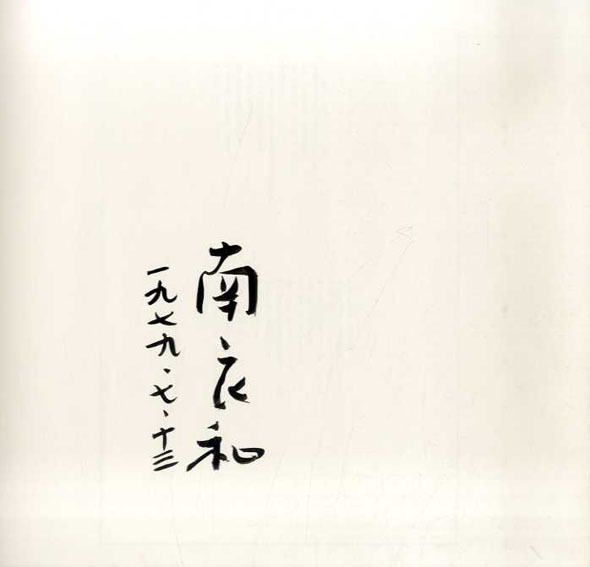 南良和
一九七九、七、十三